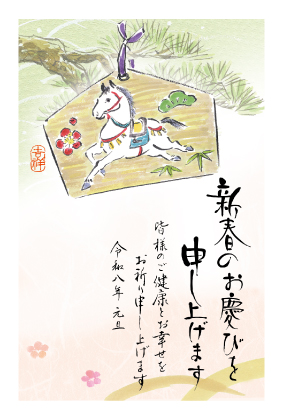 新春のお慶びを
申し上げます
皆様のご健康とお幸せを
お祈り申し上げます
令和八年 元旦
吉祥